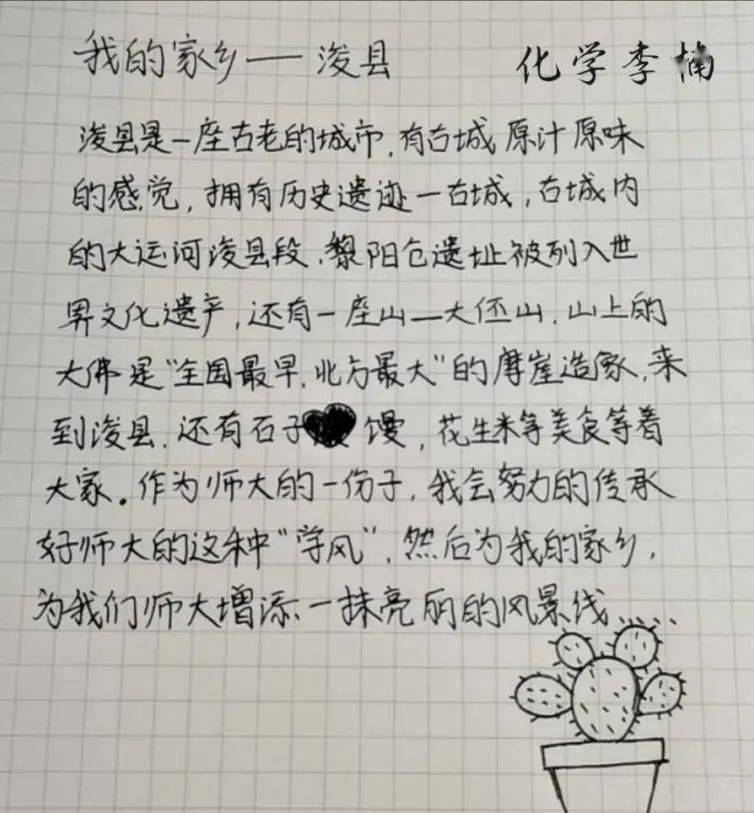 我的家乡——浚县 化学李楠
浚县是一座古老的城市，有古城原汁原味
的感觉，拥有历史遗迹一古城，古城内
的大运河浚县段，黎阳仓遗址被列入世
界文化遗产，还有一座山—大伾山，山上的
大佛是“全国最早，北方最大”的摩崖造象，来
到浚县，还有石子馍，花生米等美食等着
大家。作为师大的一份子，我会努力的传承
好师大的这种“学风”，然后为我的家乡，
为我们师大增添一抹亮丽的风景线……